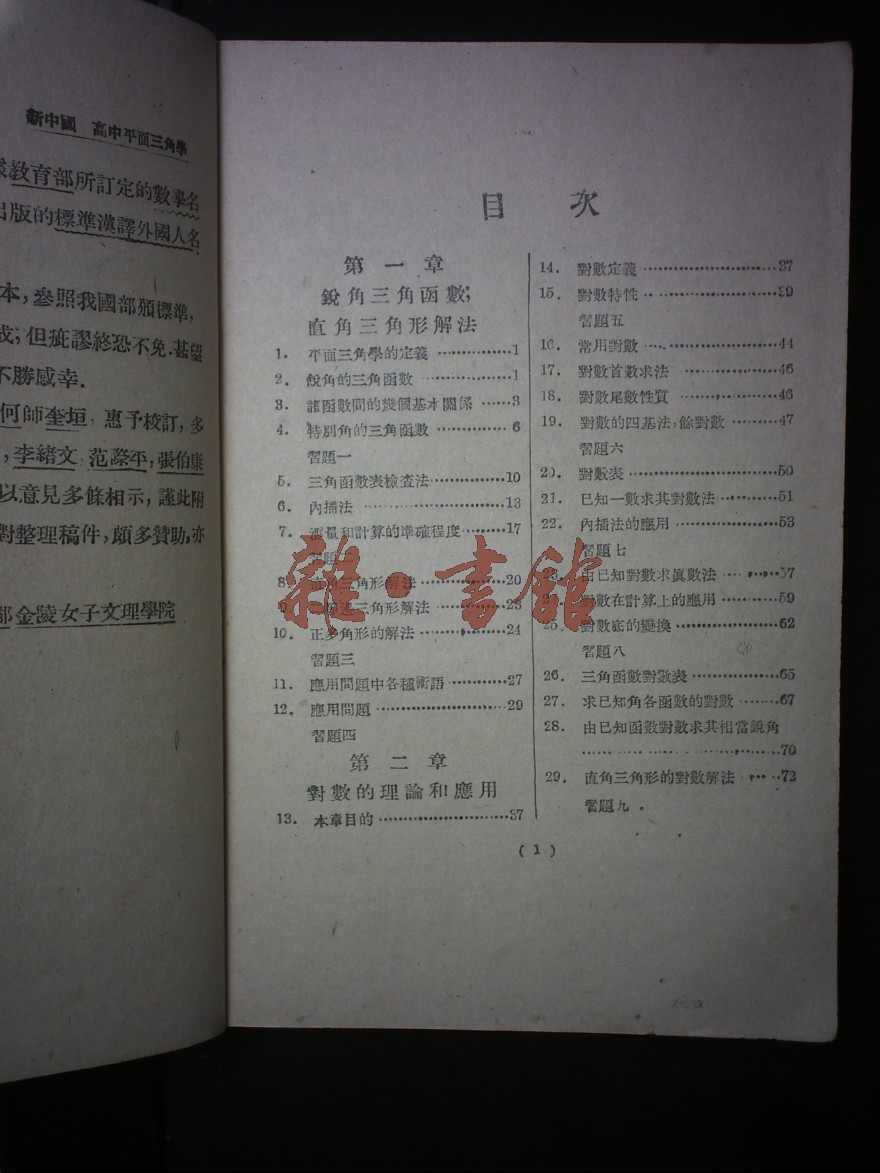 新中國　高中平面三角學
教育部所訂定的數學名
出版的標準漢譯外國人名
本，參照我國部頒標準，
成；但疵謬終恐不免．甚望
不勝感幸．
何師奎垣，惠予校訂，多
，李緒文，范際平，張伯康
以意見多條相示，謹此附
對整理稿件，頗多贊助，亦
金陵女子文理學院
目　次
第一章
銳角三角函數；
直角三角形解法
1. 平面三角學的定義 ……………1
2. 銳角的三角函數 ……………1
3. 諸函數間的幾個基本關係 ……3
4. 特別角的三角函數 ……………6
習題一
5. 三角函數表檢查法……………10
6. 內插法 ……………13
7. 測量和計算的準確程度………17
習題二
8. 直角三角形解法 ……………20
9. 三角形解法 ……………23
10. 正多角形的解法 ……………24
習題三
11. 應用問題中各種術語…………27
12. 應用問題 ……………29
習題四
第二章
對數的理論和應用
13. 本章目的 ……………37
14. 對數定義 ……………37
15. 對數特性 ……………39
習題五
16. 常用對數 ……………44
17. 對數首數求法 ……………46
18. 對數尾數性質 ……………46
19. 對數的四基法，餘對數 ………47
習題六
20. 對數表 ……………50
21. 已知一數求其對數法…………51
22. 內插法的應用 ……………53
習題七
23. 由已知對數求眞數法 ………57
24. 對數在計算上的應用 ………59
25. 對數底的變換 ……………62
習題八
26. 三角函數對數表 ……………65
27. 求已知角各函數的對數 ………67
28. 由已知函數對數求其相當銳角
……………70
29. 直角三角形的對數解法 ………72
習題九
( 1 )
雜·書館